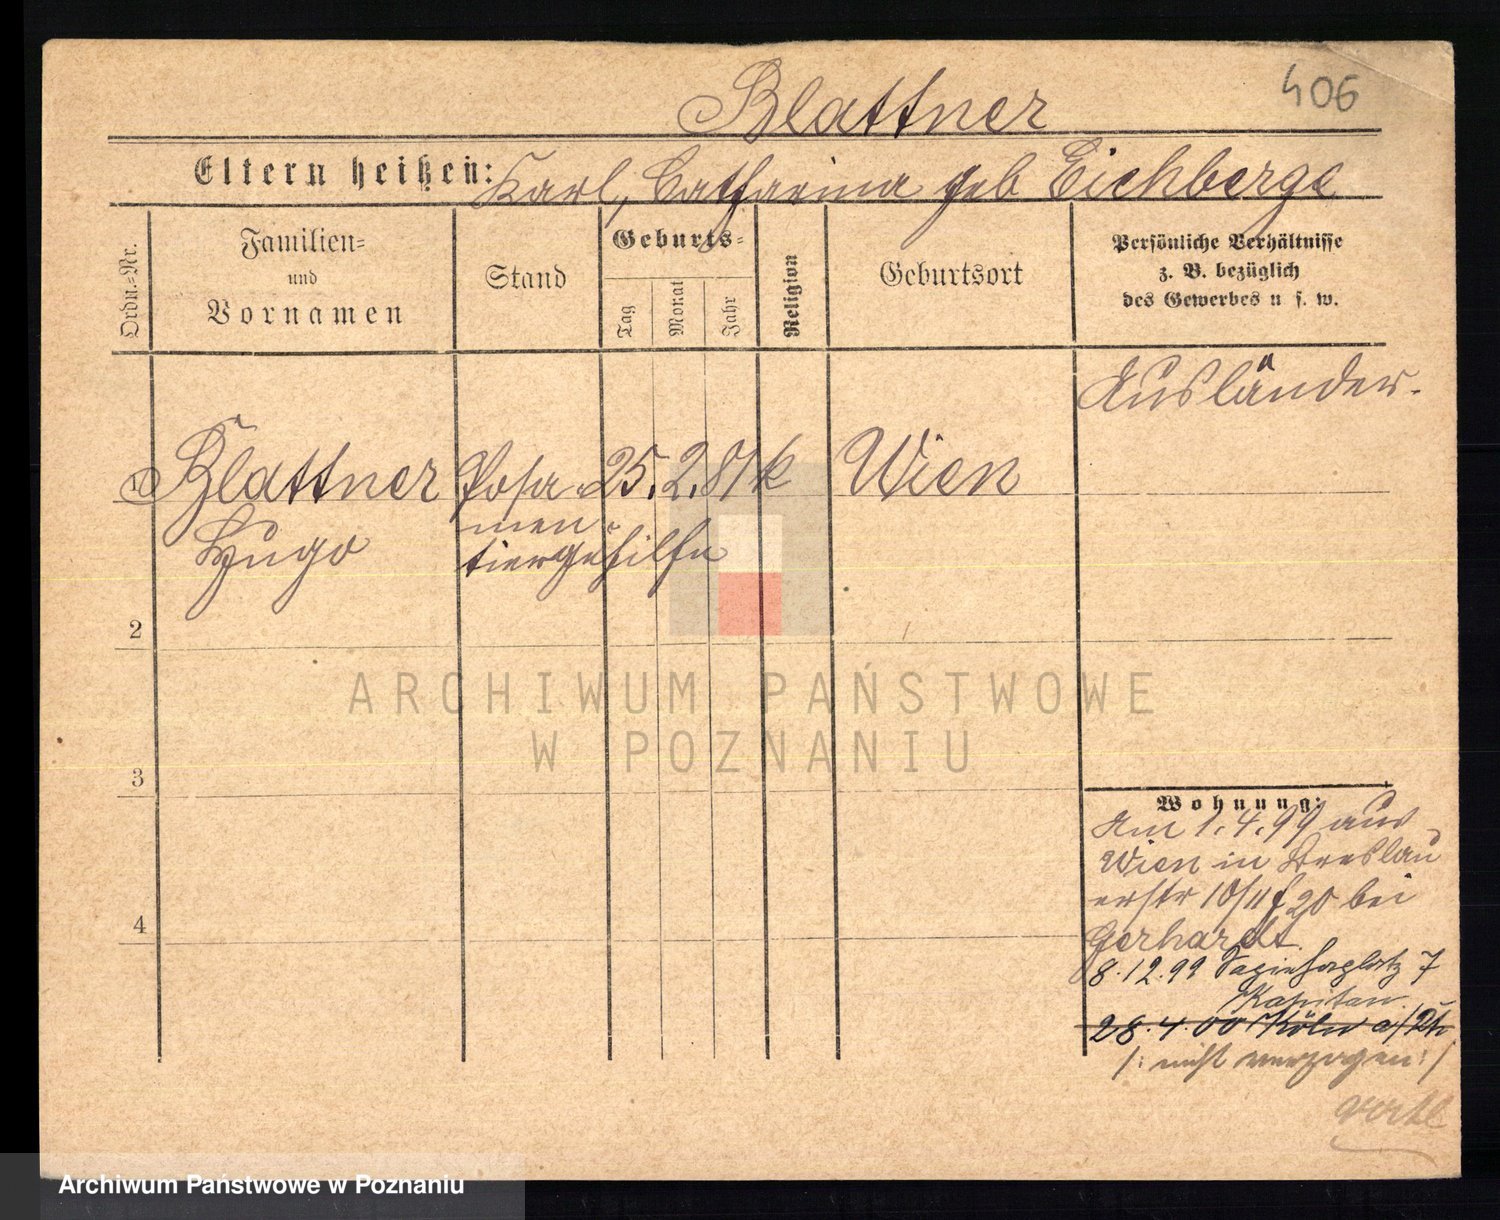 406
Blattner
Eltern heißen: Karl, Catharina geb Eichberge
Ordn.-Nr.
Familien-
und
Vornamen
Stand
Geburts-
Tag
Monat
Jahr
Religion
Geburtsort
Persönliche Verhältnisse
z. B. bezüglich
des Gewerbes u s. w.
Ausländer.
1 Blattner Posa- 25. 2. 81 k Wien
Hugo
men-
tiergehilfe
2
3
4
Wohnung:
Am 1.4.99 aus
Wien in Breslau
erstr 10/11 f 20 bei
Gerhardt.
8.12.99 Sapiehaplatz 7
Kapitan.
28.4.00 Köln a/Rh
/: nicht verzogen :/
ARCHIWUM PAŃSTWOWE
W POZNANIU
Archiwum Państwowe w Poznaniu